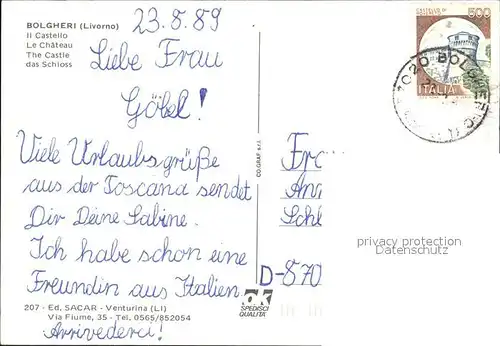 BOLGHERI (Livorno)
Il Castello
Le Château
The Castle
das Schloss
23.8.89
Liebe Frau
Göbel!
Viele Urlaubsgrüße
aus der Toscana sendet
Dir Deine Sabine.
Ich habe schon eine
Freundin aus Italien.
207 - Ed. SACAR - Venturina (LI)
Via Fiume, 35 - Tel. 0565/852054
Arrivederci!
CO.GRAF s.r.l.
500
ITALIA
BOLGHERI
Fr
An
Sch
D-870
privacy protection
Datenschutz
OK
SPEDISCI
QUALITÀ